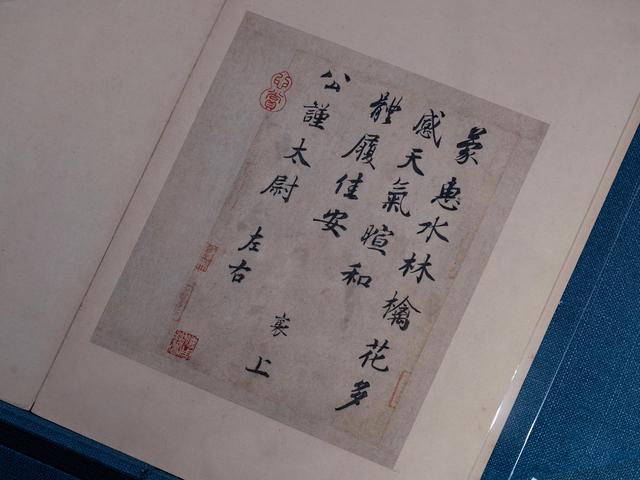 蒙惠水林檎花多
感天氣暄和
體履佳安
公謹太尉左右
襄上